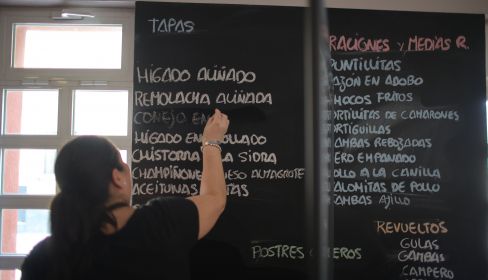 TAPAS
HÍGADO ALIÑADO
REMOLACHA ALIÑADA
CONEJO EN
HÍGADO
CHISTORRA LA SIDRA
CHAMPIÑONES QUESO ALMAGROTE
ACEITUNAS
RACIONES Y MEDIAS R.
PUNTILLITAS
CAZÓN EN ADOBO
CHOCOS FRITOS
TORTILLITAS DE CAMARONES
ORTIGUILLAS
GAMBAS REBOZADAS
EMPANADO
POLLO A LA CANILLA
PALOMITAS DE POLLO
GAMBAS AJILLO
REVUELTOS
GULAS
GAMBAS
CAMPERO
POSTRES CASEROS